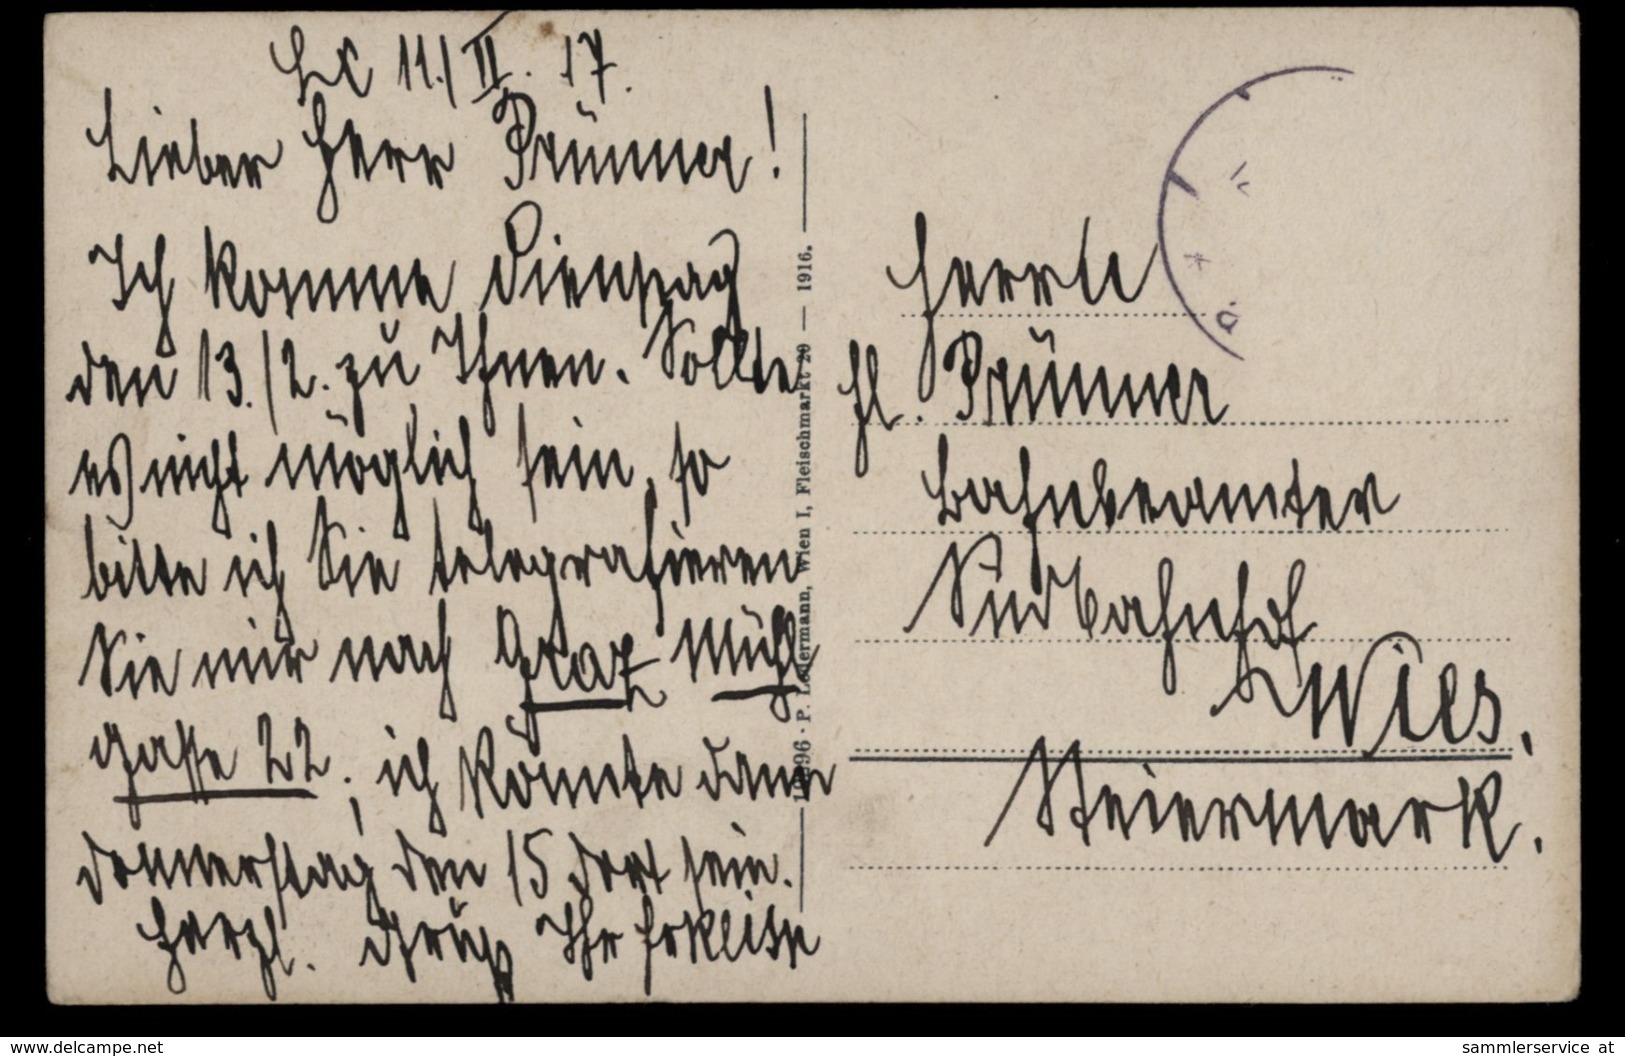 11./II. 17.
Lieber Herr Prümmer!
Ich komme Dienstag
den 13./2. zu Ihnen. Sollte
es nicht möglich sein, so
bitte ich Sie telegrafieren
Sie mir nach Graz Mühl
gasse 22, ich könnte dann
Donnerstag den 15 dort sein.
Herzl. Gruß Ihr
19996 · P. Ledermann, Wien I, Fleischmarkt 20 — 1916.
Herrn
Prümmer
Bahnbeamter
Südbahnhof
Wies.
Steiermark.
www.delcampe.net
sammlerservice at